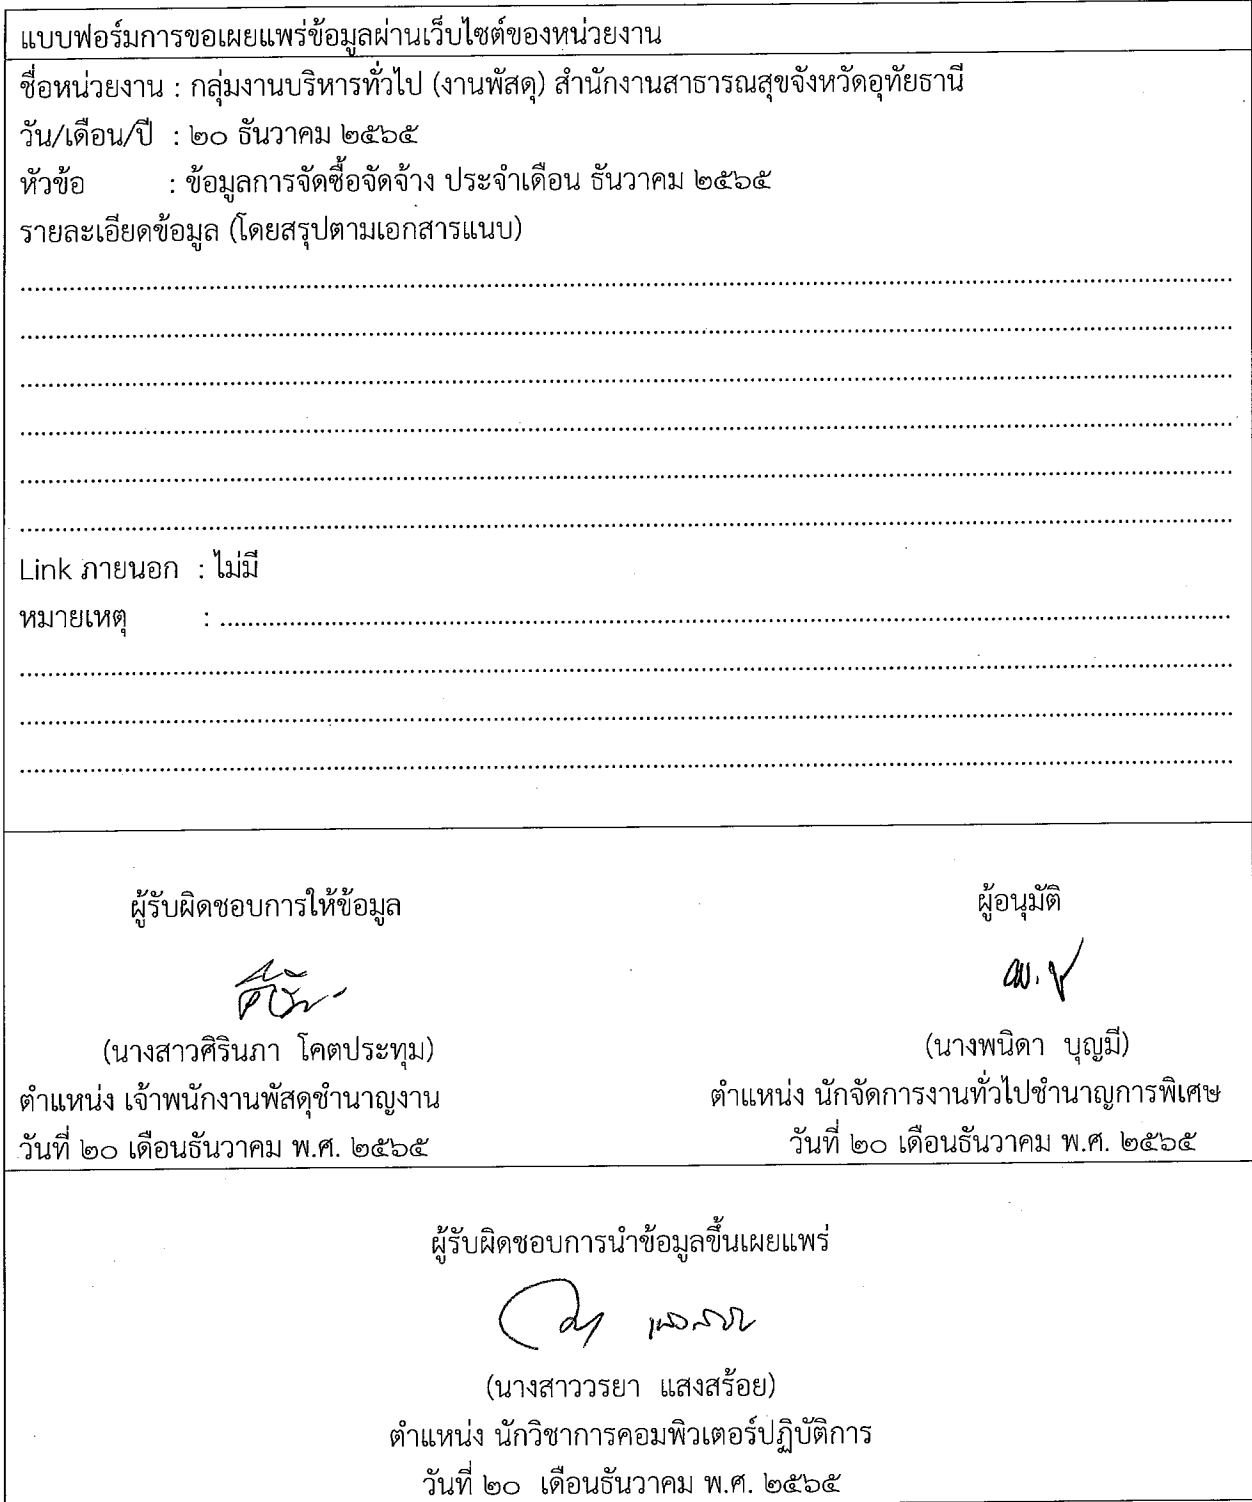 แบบฟอร์มการขอเผยแพร่ข้อมูลผ่านเว็บไซต์ของหน่วยงาน
ชื่อหน่วยงาน : กลุ่มงานบริหารทั่วไป (งานพัสดุ) สำนักงานสาธารณสุขจังหวัดอุทัยธานี
วัน/เดือน/ปี : ๒๐ ธันวาคม ๒๕๖๕
หัวข้อ : ข้อมูลการจัดซื้อจัดจ้าง ประจำเดือน ธันวาคม ๒๕๖๕
รายละเอียดข้อมูล (โดยสรุปตามเอกสารแนบ)
Link ภายนอก : ไม่มี
หมายเหตุ :
ผู้รับผิดชอบการให้ข้อมูล
(นางสาวศิรินภา โคตประทุม)
ตำแหน่ง เจ้าพนักงานพัสดุชำนาญงาน
วันที่ ๒๐ เดือนธันวาคม พ.ศ. ๒๕๖๕
ผู้อนุมัติ
(นางพนิดา บุญมี)
ตำแหน่ง นักจัดการงานทั่วไปชำนาญการพิเศษ
วันที่ ๒๐ เดือนธันวาคม พ.ศ. ๒๕๖๕
ผู้รับผิดชอบการนำข้อมูลขึ้นเผยแพร่
(นางสาววรยา แสงสร้อย)
ตำแหน่ง นักวิชาการคอมพิวเตอร์ปฏิบัติการ
วันที่ ๒๐ เดือนธันวาคม พ.ศ. ๒๕๖๕